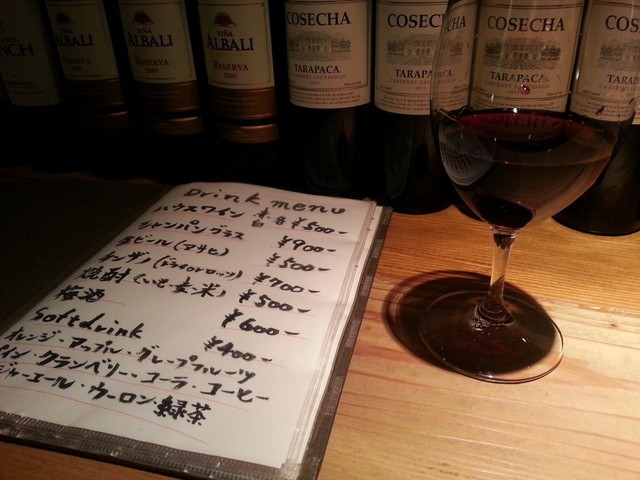 NCH
VIÑA
ALBALI
RESERVA
2009
VIÑA
ALBALI
RESERVA
2009
VIÑA
ALBALI
RESERVA
2009
COSECHA
TARAPACA
CABERNET SAUVIGNON
COSECHA
TARAPACA
CABERNET SAUVIGNON
COSECHA
TARAPACA
CABERNET SAUVIGNON
COSECHA
TARAPACA
Drink menu
ハウスワイン 赤 白 ¥500-
シャンパングラス ¥900-
生ビール(アサヒ) ¥500-
チンザノ(ドライorロッソ) ¥700-
焼酎(いも・麦・米) ¥500-
梅酒 ¥600-
Soft drink ¥400-
オレンジ・アップル・グレープフルーツ
イン・クランベリー・コーラ・コーヒー
ジャーエール・ウーロン・緑茶